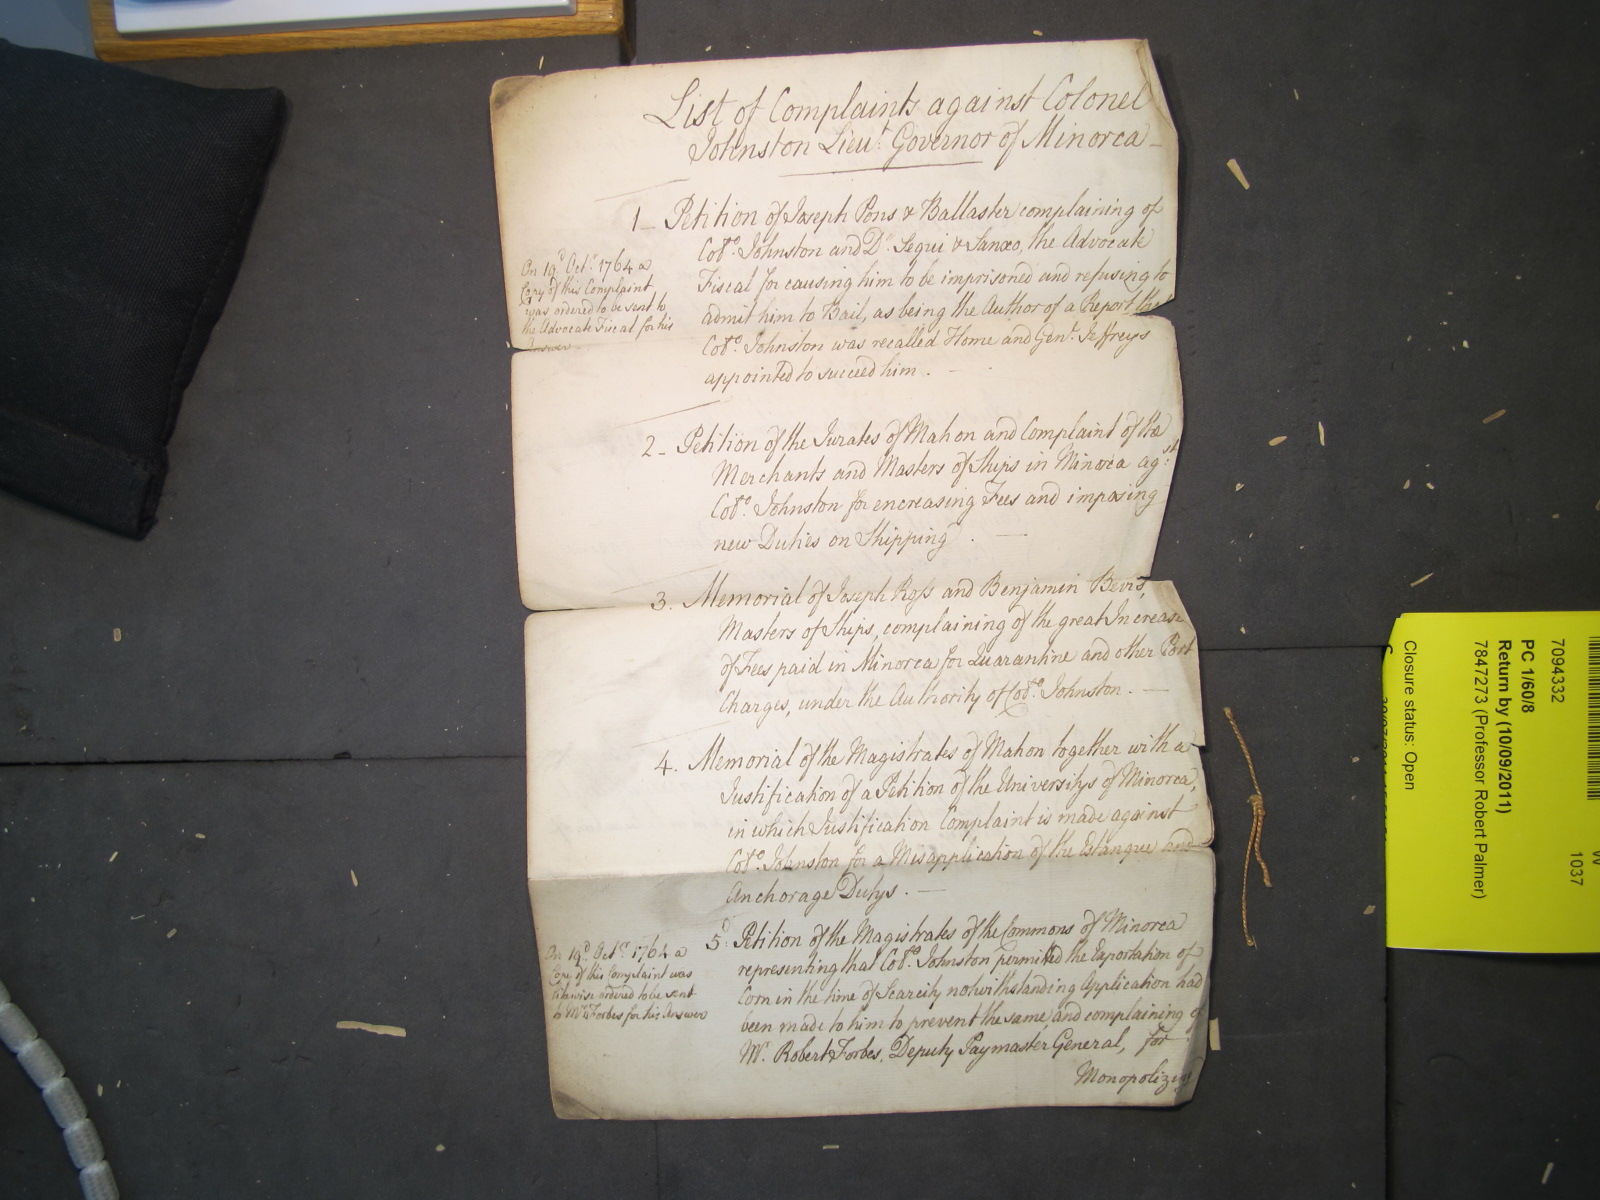 List of Complaints against Colonel
Johnston Lieut. Governor of Minorca
1 Petition of Joseph Pons & Ballaster complaining of
Colo. Johnston and Dr. Segui & Sanxo, the Advocate
Fiscal for causing him to be imprisoned and refusing to
admit him to Bail, as being the Author of a Report the
Colo. Johnston was recalled Home and Genl. Jeffreys
appointed to succeed him.
On 19th Octr. 1764 a
Copy of this Complaint
was ordered to be sent to
the Advocate Fiscal for his
Answer
2 Petition of the Jurates of Mahon and Complaint of the
Merchants and Masters of Ships in Minorca agst.
Colo. Johnston for encreasing Fees and imposing
new Duties on Shipping.
3. Memorial of Joseph Ross and Benjamin Bevis,
Masters of Ships, complaining of the great Increase
of Fees paid in Minorca for Quarantine and other Port
Charges, under the Authority of Colo. Johnston.
4. Memorial of the Magistrates of Mahon together with a
Justification of a Petition of the Universitys of Minorca,
in which Justification Complaint is made against
Colo. Johnston for a Misapplication of the Estanque and
Anchorage Dutys.
5. Petition of the Magistrates of the Commons of Minorca
representing that Colo. Johnston permitted the Exportation of
Corn in the time of Scarcity notwithstanding Application had
been made to him to prevent the same, and complaining of
Mr. Robert Forbes, Deputy Paymaster General, for
Monopolizing
On 19th Octr. 1764 a
Copy of this Complaint was
likewise ordered to be sent
to Mr. Forbes for his Answer
1037
7094332
PC 1/60/8
Return by (10/09/2011)
7847273 (Professor Robert Palmer)
Closure status: Open